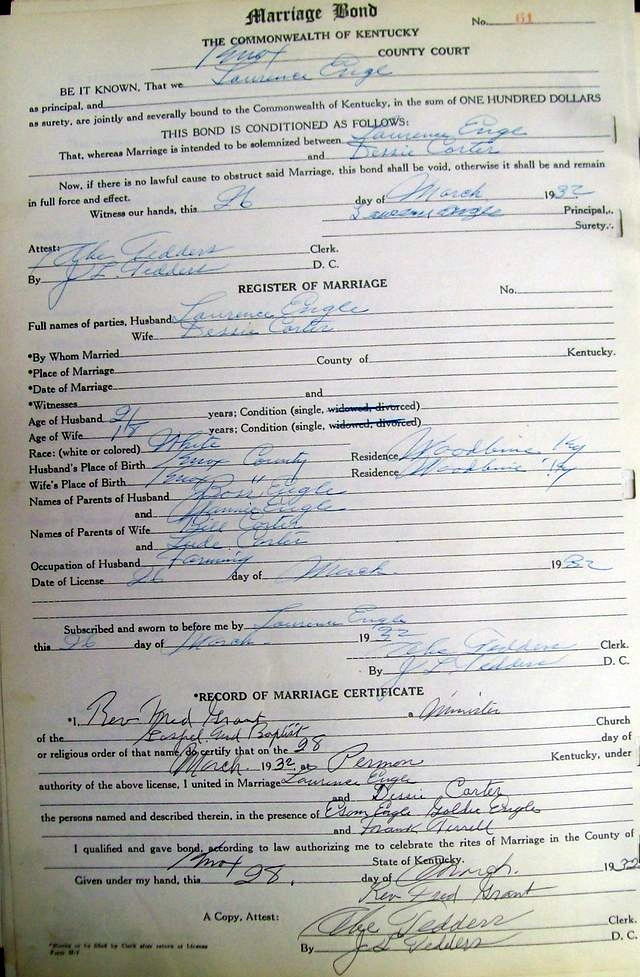 Marriage Bond
No. 61
THE COMMONWEALTH OF KENTUCKY
Knox COUNTY COURT
BE IT KNOWN, That we Laurence Engle
as principal, and
as surety, are jointly and severally bound to the Commonwealth of Kentucky, in the sum of ONE HUNDRED DOLLARS
THIS BOND IS CONDITIONED AS FOLLOWS:
That, whereas Marriage is intended to be solemnized between Laurence Engle
and Dessie Carter
Now, if there is no lawful cause to obstruct said Marriage, this bond shall be void, otherwise it shall be and remain
in full force and effect.
Witness our hands, this 26 day of March 1932
Laurence Engle Principal.
Surety.
Attest:
Abe Tedders Clerk.
By J L Tedders D. C.
REGISTER OF MARRIAGE
No.
Full names of parties, Husband Laurence Engle
Wife Dessie Carter
*By Whom Married
*Place of Marriage County of Kentucky.
*Date of Marriage
*Witnesses and
Age of Husband 21 years; Condition (single, widowed, divorced)
Age of Wife 18 years; Condition (single, widowed, divorced)
Race: (white or colored) White
Husband's Place of Birth Knox County Residence Woodbine Ky
Wife's Place of Birth Knox " Residence Woodbine Ky
Names of Parents of Husband Boss Engle
and Mannie Engle
Names of Parents of Wife Bill Carter
and Lude Carter
Occupation of Husband Farming
Date of License 26 day of March 1932
Subscribed and sworn to before me by Laurence Engle
this 26 day of March 1932
Abe Tedders Clerk.
By J L Tedders D. C.
*RECORD OF MARRIAGE CERTIFICATE
*I, Rev Fred Grant a Minister
of the Gospel and Baptist Church
or religious order of that name, do certify that on the 28 day of
March 1932, at Permon Kentucky, under
authority of the above license, I united in Marriage Laurence Engle
and Dessie Carter
the persons named and described therein, in the presence of Esom Engle Goldie Engle
and Frank Terrell
I qualified and gave bond, according to law authorizing me to celebrate the rites of Marriage in the County of
Knox State of Kentucky.
Given under my hand, this 28. day of March. 1932
Rev Fred Grant
A Copy, Attest:
Abe Tedders Clerk.
By J L Tedders D. C.
*Blanks to be filled by Clerk after return of License